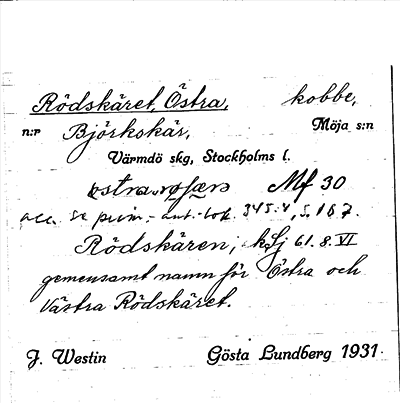 Rödskäret, Östra, kobbe,
n:r Björkskär, Möja s:n
Värmdö skg, Stockholms l.
Mf 30
acc. se prim.-ant.-lok. 345:4, s. 167.
Rödskären; kLj 61.8.VI
gemensamt namn för Östra och
Västra Rödskäret.
J. Westin Gösta Lundberg 1931.